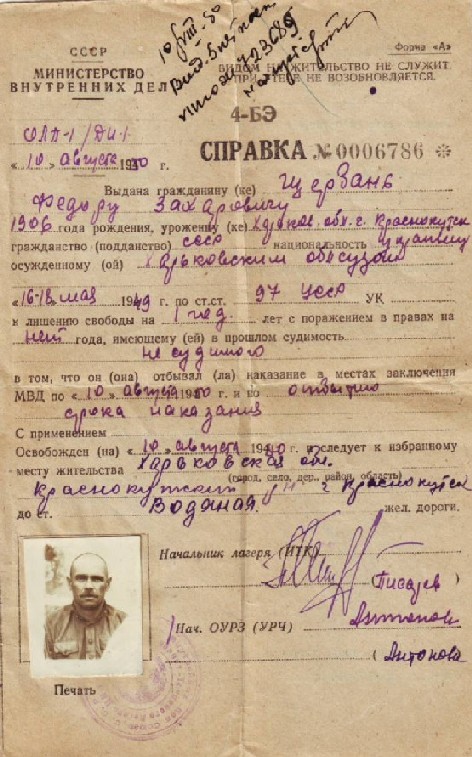 10/VIII-50
СССР
МИНИСТЕРСТВО
ВНУТРЕННИХ ДЕЛ
Форма «А»
ВИДОМ НА ЖИТЕЛЬСТВО НЕ СЛУЖИТ
ПРИ УТЕРЕ НЕ ВОЗОБНОВЛЯЕТСЯ.
4-БЭ
«10» августа 1950 г.
СПРАВКА № 0006786
Выдана гражданину (ке) Щербань
Федору Захаровичу
1906 года рождения, уроженцу (ке) Харьков. обл. с. Краснокутск
гражданство (подданство) СССР национальность украинец
осужденному (ой) Харьковским облсудом
«16-18» мая 1949 г. по ст.ст. 97 УССР УК
к лишению свободы на 1 год лет с поражением в правах на
нет года, имеющему (ей) в прошлом судимость
не судимого
в том, что он (она) отбывал (ла) наказание в местах заключения
МВД по «10» августа 1950 г. и по отбытию
срока наказания
С применением
Освобожден (на) «10» августа 1950 г. и следует к избранному
месту жительства Харьковская обл.
(город, село, дер., район, область)
Краснокутский Краснокутск
до ст. Водяная жел. дороги.
Начальник лагеря (ИТК)
(Писарев
Нач. ОУРЗ (УРЧ) Антонова
(Антонова
Печать